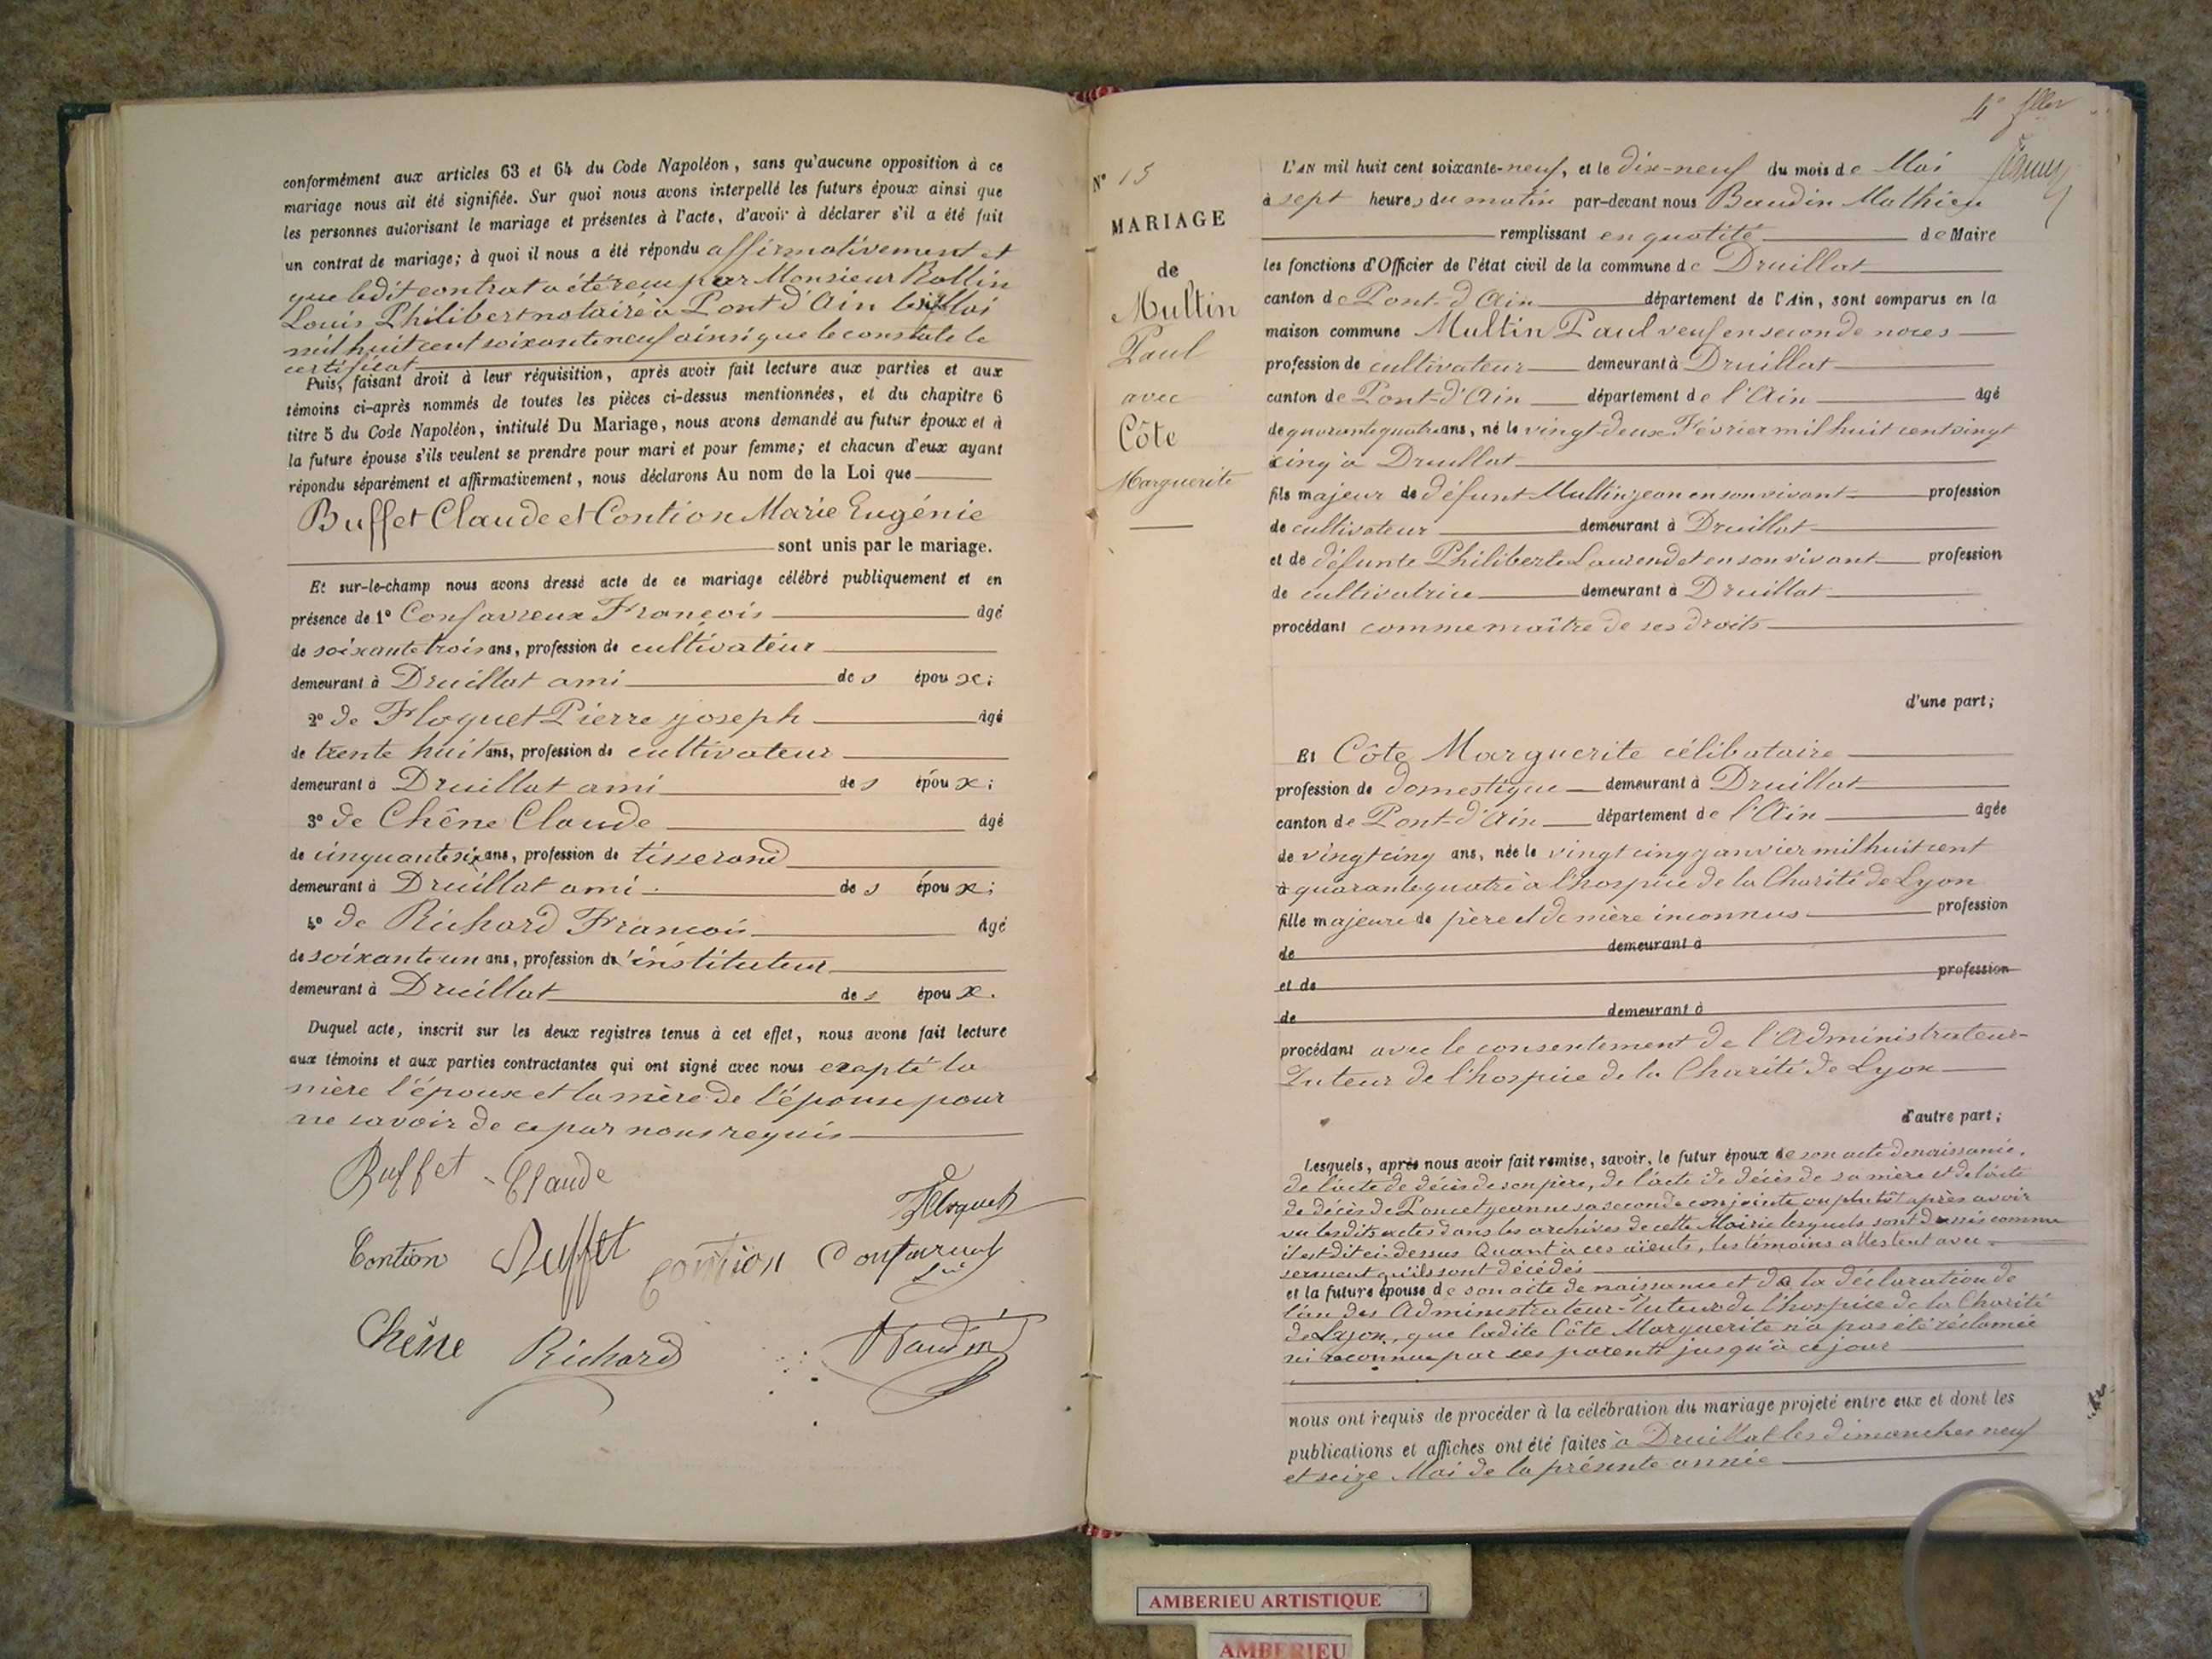 conformément aux articles 63 et 64 du Code Napoléon, sans qu'aucune opposition à ce
mariage nous ait été signifiée. Sur quoi nous avons interpellé les futurs époux ainsi que
les personnes autorisant le mariage et présentes à l'acte, d'avoir à déclarer s'il a été fait
un contrat de mariage; à quoi il nous a été répondu affirmativement et
que ledit contrat a été reçu par Monsieur Rollin
Louis Philibert notaire à Pont d'Ain le Mai
mil huit cent soixante neuf ainsi que le constate le
certificat
Puis, faisant droit à leur réquisition, après avoir fait lecture aux parties et aux
témoins ci-après nommés de toutes les pièces ci-dessus mentionnées, et du chapitre 6
titre 5 du Code Napoléon, intitulé Du Mariage, nous avons demandé au futur époux et à
la future épouse s'ils veulent se prendre pour mari et pour femme; et chacun d'eux ayant
répondu séparément et affirmativement, nous déclarons Au nom de la Loi que
Buffet Claude et Contion Marie Eugénie
sont unis par le mariage.
Et sur-le-champ nous avons dressé acte de ce mariage célébré publiquement et en
présence de 1° Confavreux François âgé
de soixante trois ans, profession de cultivateur
demeurant à Druillat ami des époux;
2° de Floquet Pierre joseph âgé
de trente huit ans, profession de cultivateur
demeurant à Druillat ami des époux;
3° de Chêne Claude âgé
de cinquante six ans, profession de tisserand
demeurant à Druillat ami des époux;
4° de Richard François âgé
de soixante un ans, profession d'instituteur
demeurant à Druillat des époux.
Duquel acte, inscrit sur les deux registres tenus à cet effet, nous avons fait lecture
aux témoins et aux parties contractantes qui ont signé avec nous excepté la
mère l'époux et la mère de l'épouse pour
ne savoir de ce par nous requis
Buffet Claude
Floquet
Contion Buffet Contion Confavreux
Chêne Richard Baudin
N° 15
MARIAGE
de
Multin
Paul
avec
Côte
Marguerite
L'AN mil huit cent soixante-neuf, et le dix-neuf du mois de Mai
à sept heures du matin par-devant nous Baudin Mathieu
remplissant en qualité de Maire
les fonctions d'Officier de l'état civil de la commune de Druillat
canton de Pont-d'Ain département de l'Ain, sont comparus en la
maison commune Multin Paul veuf en seconde noces
profession de cultivateur demeurant à Druillat
canton de Pont-d'Ain département de l'Ain âgé
de quarante quatre ans, né le vingt-deux Février mil huit cent vingt
cinq à Druillat
fils majeur de défunt Multin jean en son vivant profession
de cultivateur demeurant à Druillat
et de défunte Philiberte Laurendet en son vivant profession
de cultivatrice demeurant à Druillat
procédant comme maître de ses droits
d'une part;
Et Côte Marguerite célibataire
profession de domestique demeurant à Druillat
canton de Pont-d'Ain département de l'Ain âgée
de vingt cinq ans, née le vingt cinq janvier mil huit cent
à quarante quatre à l'hospice de la Charité de Lyon
fille majeure de père et de mère inconnus profession
de demeurant à
et de profession
de demeurant à
procédant avec le consentement de l'Administrateur-
Tuteur de l'hospice de la Charité de Lyon
d'autre part;
Lesquels, après nous avoir fait remise, savoir, le futur époux de son acte de naissance,
de l'acte de décès de son père, de l'acte de décès de sa mère et de l'acte
de décès de Poncet jeanne sa seconde conjointe ou plutôt après avoir
vu lesdits actes dans les archives de cette Mairie lesquels sont dressés comme
il est dit ci-dessus Quant à ces aïeuls, les témoins attestent avec
serment qu'ils sont décédés
et la future épouse de son acte de naissance et de la déclaration de
l'un des Administrateur-Tuteur de l'hospice de la Charité
de Lyon, que ladite Côte Marguerite n'a pas été réclamée
ni reconnue par ses parents jusqu'à ce jour
nous ont requis de procéder à la célébration du mariage projeté entre eux et dont les
publications et affiches ont été faites à Druillat les dimanches neuf
et seize Mai de la présente année
AMBERIEU ARTISTIQUE
AMBERIEU